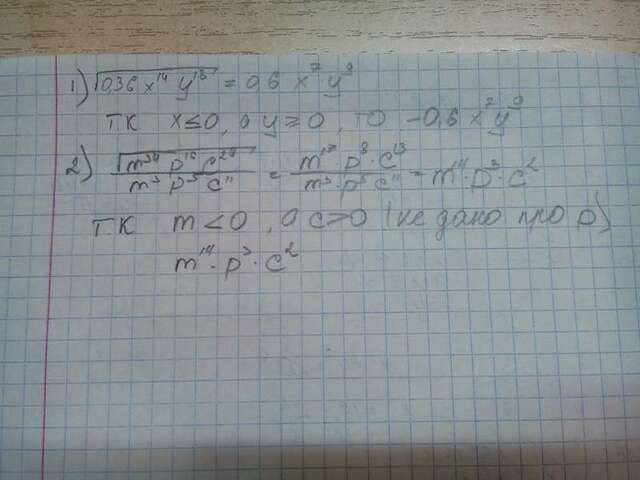 1) √0,36 x¹⁴ y¹⁸ = 0,6 x⁷ y⁹
Т.К x ≤ 0, а y ≥ 0, то -0,6 x⁷ y⁹
2) √m³⁴ p¹⁶ c²⁶ / m³ p⁵ c¹¹ = m¹⁷ · p⁸ · c¹³ / m³ · p⁵ c¹¹ = m¹⁴ · p³ · c²
Т.К m < 0, а c > 0 (не дано про p)
m¹⁴ · p³ · c²